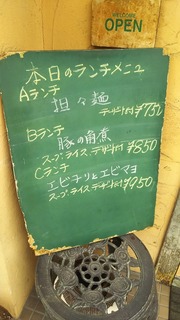 WELCOME
OPEN
本日のランチメニュ
Aランチ
担々麺
デザート付¥750
Bランチ
豚の角煮
スープ ライス デザート付¥850
Cランチ
エビチリとエビマヨ
スープ ライス デザート付¥950